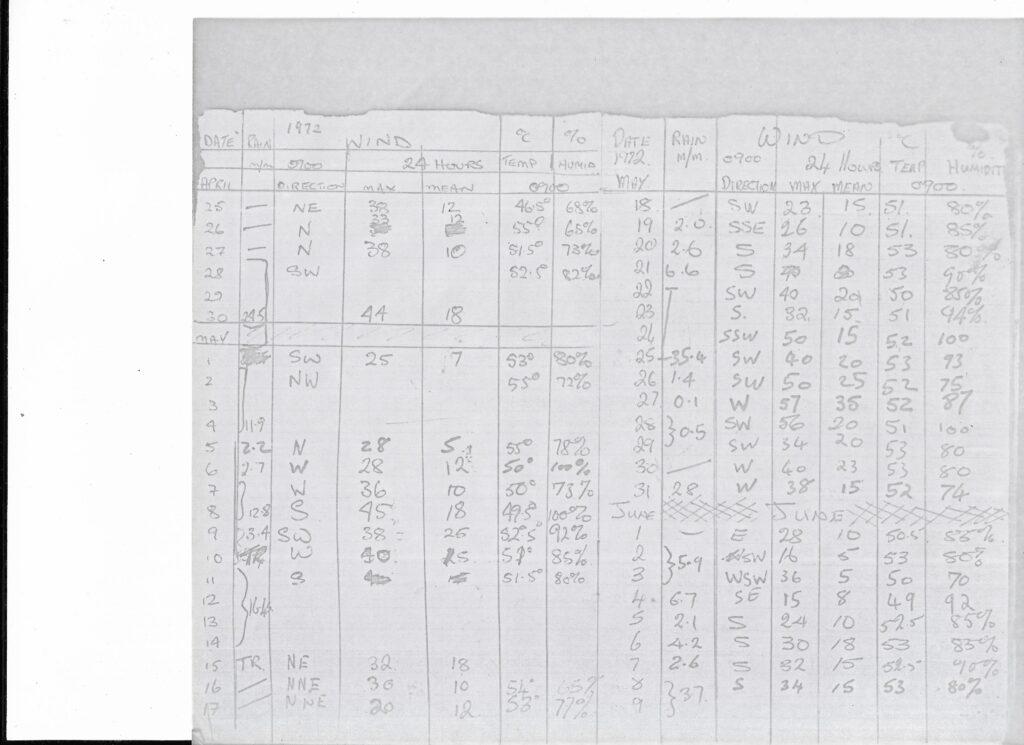 1972
DATE RAIN WIND °C %
m/m 0900 24 HOURS TEMP HUMID
APRIL DIRECTION MAX MEAN 0900
25 — NE 38 12 46.5° 68%
26 — N 33 12 55° 65%
27 — N 38 10 51.5° 73%
28 SW 52.5° 82%
29
30 24.5 44 18
MAY
1 SW 25 7 53° 80%
2 NW 55° 72%
3
4 11.9
5 2.2 N 28 5 55° 78%
6 2.7 W 28 12 50° 100%
7 W 36 10 50° 73%
8 12.8 S 45 18 49.5° 100%
9 3.4 SW 38 25 52.5° 92%
10 TR W 40 15 51° 85%
11 S 51.5° 80%
12
13
14
15 TR NE 32 18
16 — NNE 30 10 54° 65%
17 NNE 20 12 53° 77%
DATE RAIN WIND °C %
1972 M/M. 0900 24 HOURS TEMP HUMIDIT
MAY DIRECTION MAX MEAN 0900.
18 — SW 23 15 51. 80%
19 2.0 SSE 26 10 51. 85%
20 2.6 S 34 18 53 80%
21 6.6 S 53 90%
22 SW 40 20 50 85%
23 S. 32 15 51 94%
24 SSW 50 15 52 100
25 35.4 SW 40 20 53 93
26 1.4 SW 50 25 52 75
27 0.1 W 57 35 52 87
28 SW 56 20 51 100
29 0.5 SW 34 20 53 80
30 — W 40 23 53 80
31 28 W 38 15 52 74
JUNE JUNE
1 — E 28 10 50.5 85%
2 5.9 WSW 16 5 53 80%
3 WSW 36 5 50 70
4 6.7 SE 15 8 49 92
5 2.1 S 24 10 52.5 85%
6 4.2 S 30 18 53 83%
7 2.6 S 32 15 52.5 90%
8 37 S 34 15 53 80%
9